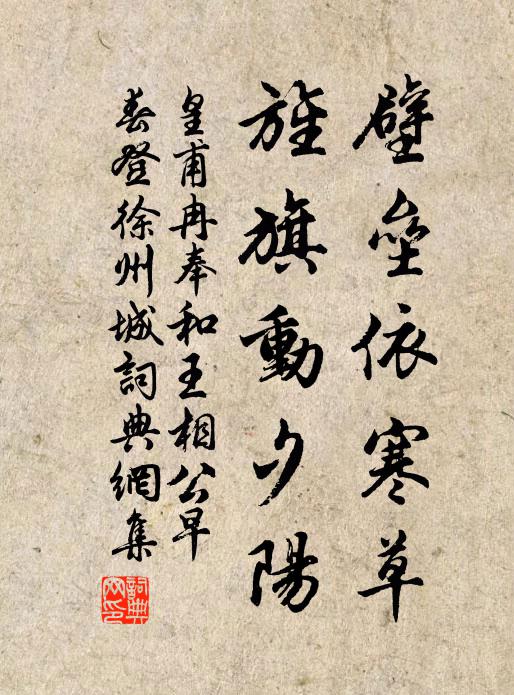 壁壘依寒草
旌旗動夕陽
皇甫冉奉和王相公早
春登徐州城詞典網集
詞典
网印